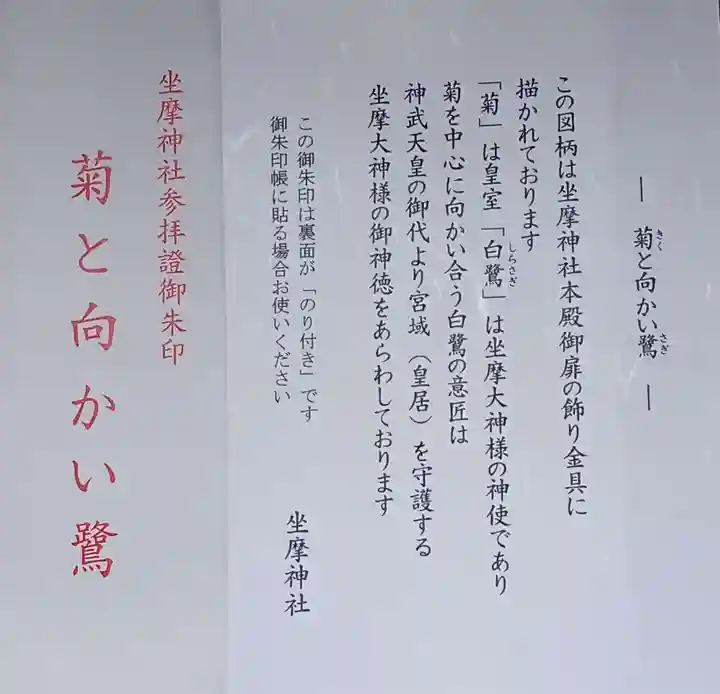 ― 菊と向かい鷺 ―
この図柄は坐摩神社本殿御扉の飾り金具に
描かれております
「菊」は皇室「白鷺」は坐摩大神様の神使であり
菊を中心に向かい合う白鷺の意匠は
神武天皇の御代より宮域（皇居）を守護する
坐摩大神様の御神徳をあらわしております
この御朱印は裏面が「のり付き」です
御朱印帳に貼る場合お使いください
坐摩神社
坐摩神社参拝證御朱印
菊と向かい鷺